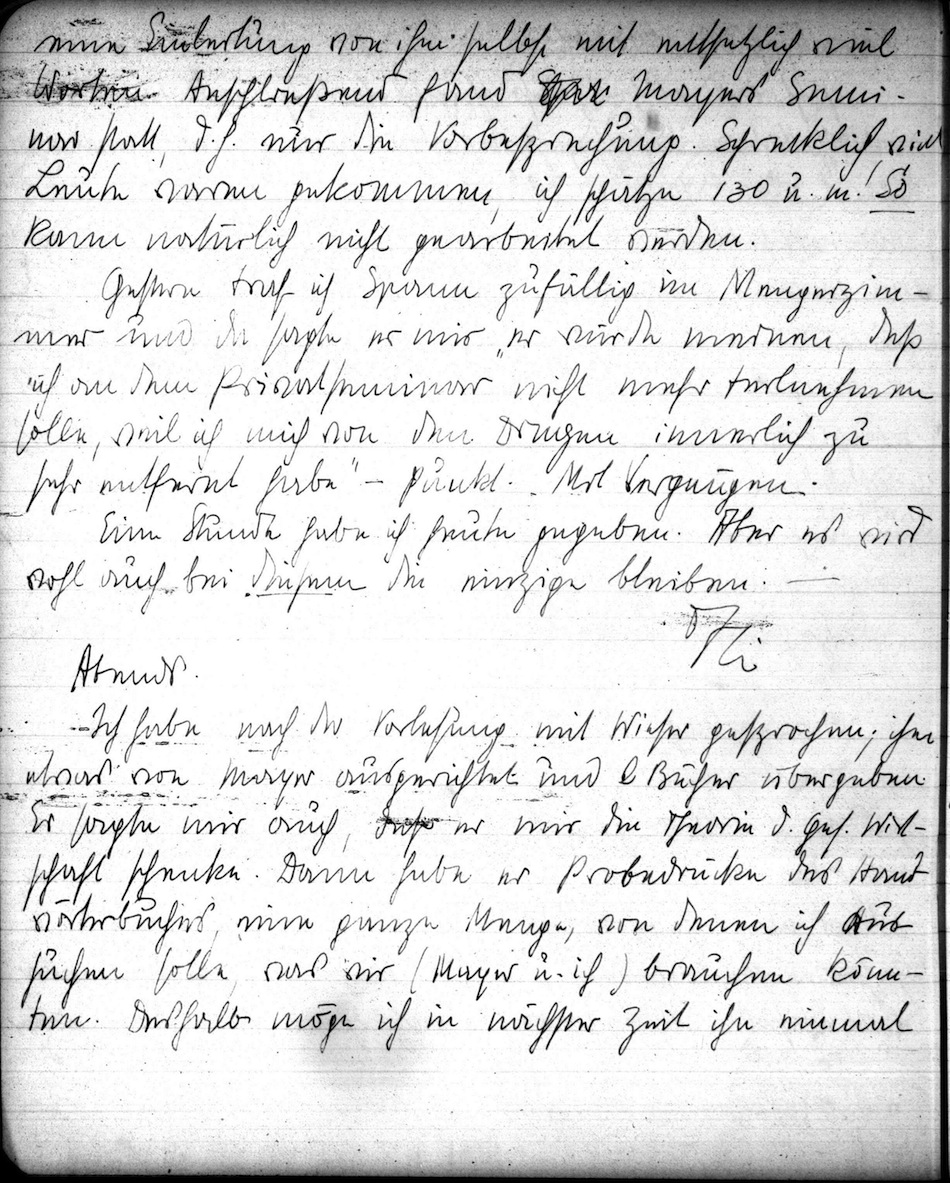 eine Einleitung von ihm selbst mit entsetzlich viel
Worten. Anschließend fand Mayers Semi-
nar statt, d.h. nur die Vorbesprechung. Schrecklich viel
Leute waren gekommen, ich schätze 130 u. m.! So
kann natürlich nicht gearbeitet werden.
Gestern traf ich Spann zufällig im Mengerzim-
mer und da sagte er mir „er würde meinen, daß
ich an dem Privatseminar nicht mehr teilnehmen
solle, weil ich mich von den Dingen innerlich zu
sehr entfernt habe" – Punkt. Mit Vergnügen.
Eine Stunde habe ich heute gegeben. Aber es wird
wohl auch bei diesem die einzige bleiben. —
Abends.
Ich habe nach der Vorlesung mit Wieser gesprochen; ihm
etwas von Mayer ausgerichtet und 2 Bücher übergeben.
Er sagte mir auch, daß er mir die Theorie d. Ges. Wirt-
schaft schenke. Dann habe er Probedrucke des Hand-
wörterbuches, eine ganze Menge, von denen ich aus-
suchen solle, was wir (Mayer u. ich) brauchen könn-
ten. Deshalb möge ich in nächster Zeit ihn einmal